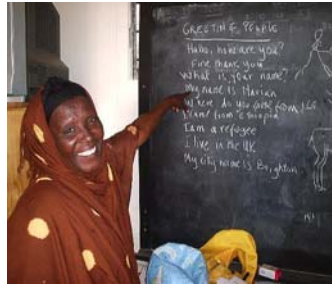 GREETING PEOPLE
Hallo, how are you?
Fine thank you
What is your name?
My name is Marian
Where do you come from
I came from Ethiopia
I am a refugee
I live in the UK
My city name is Brighton